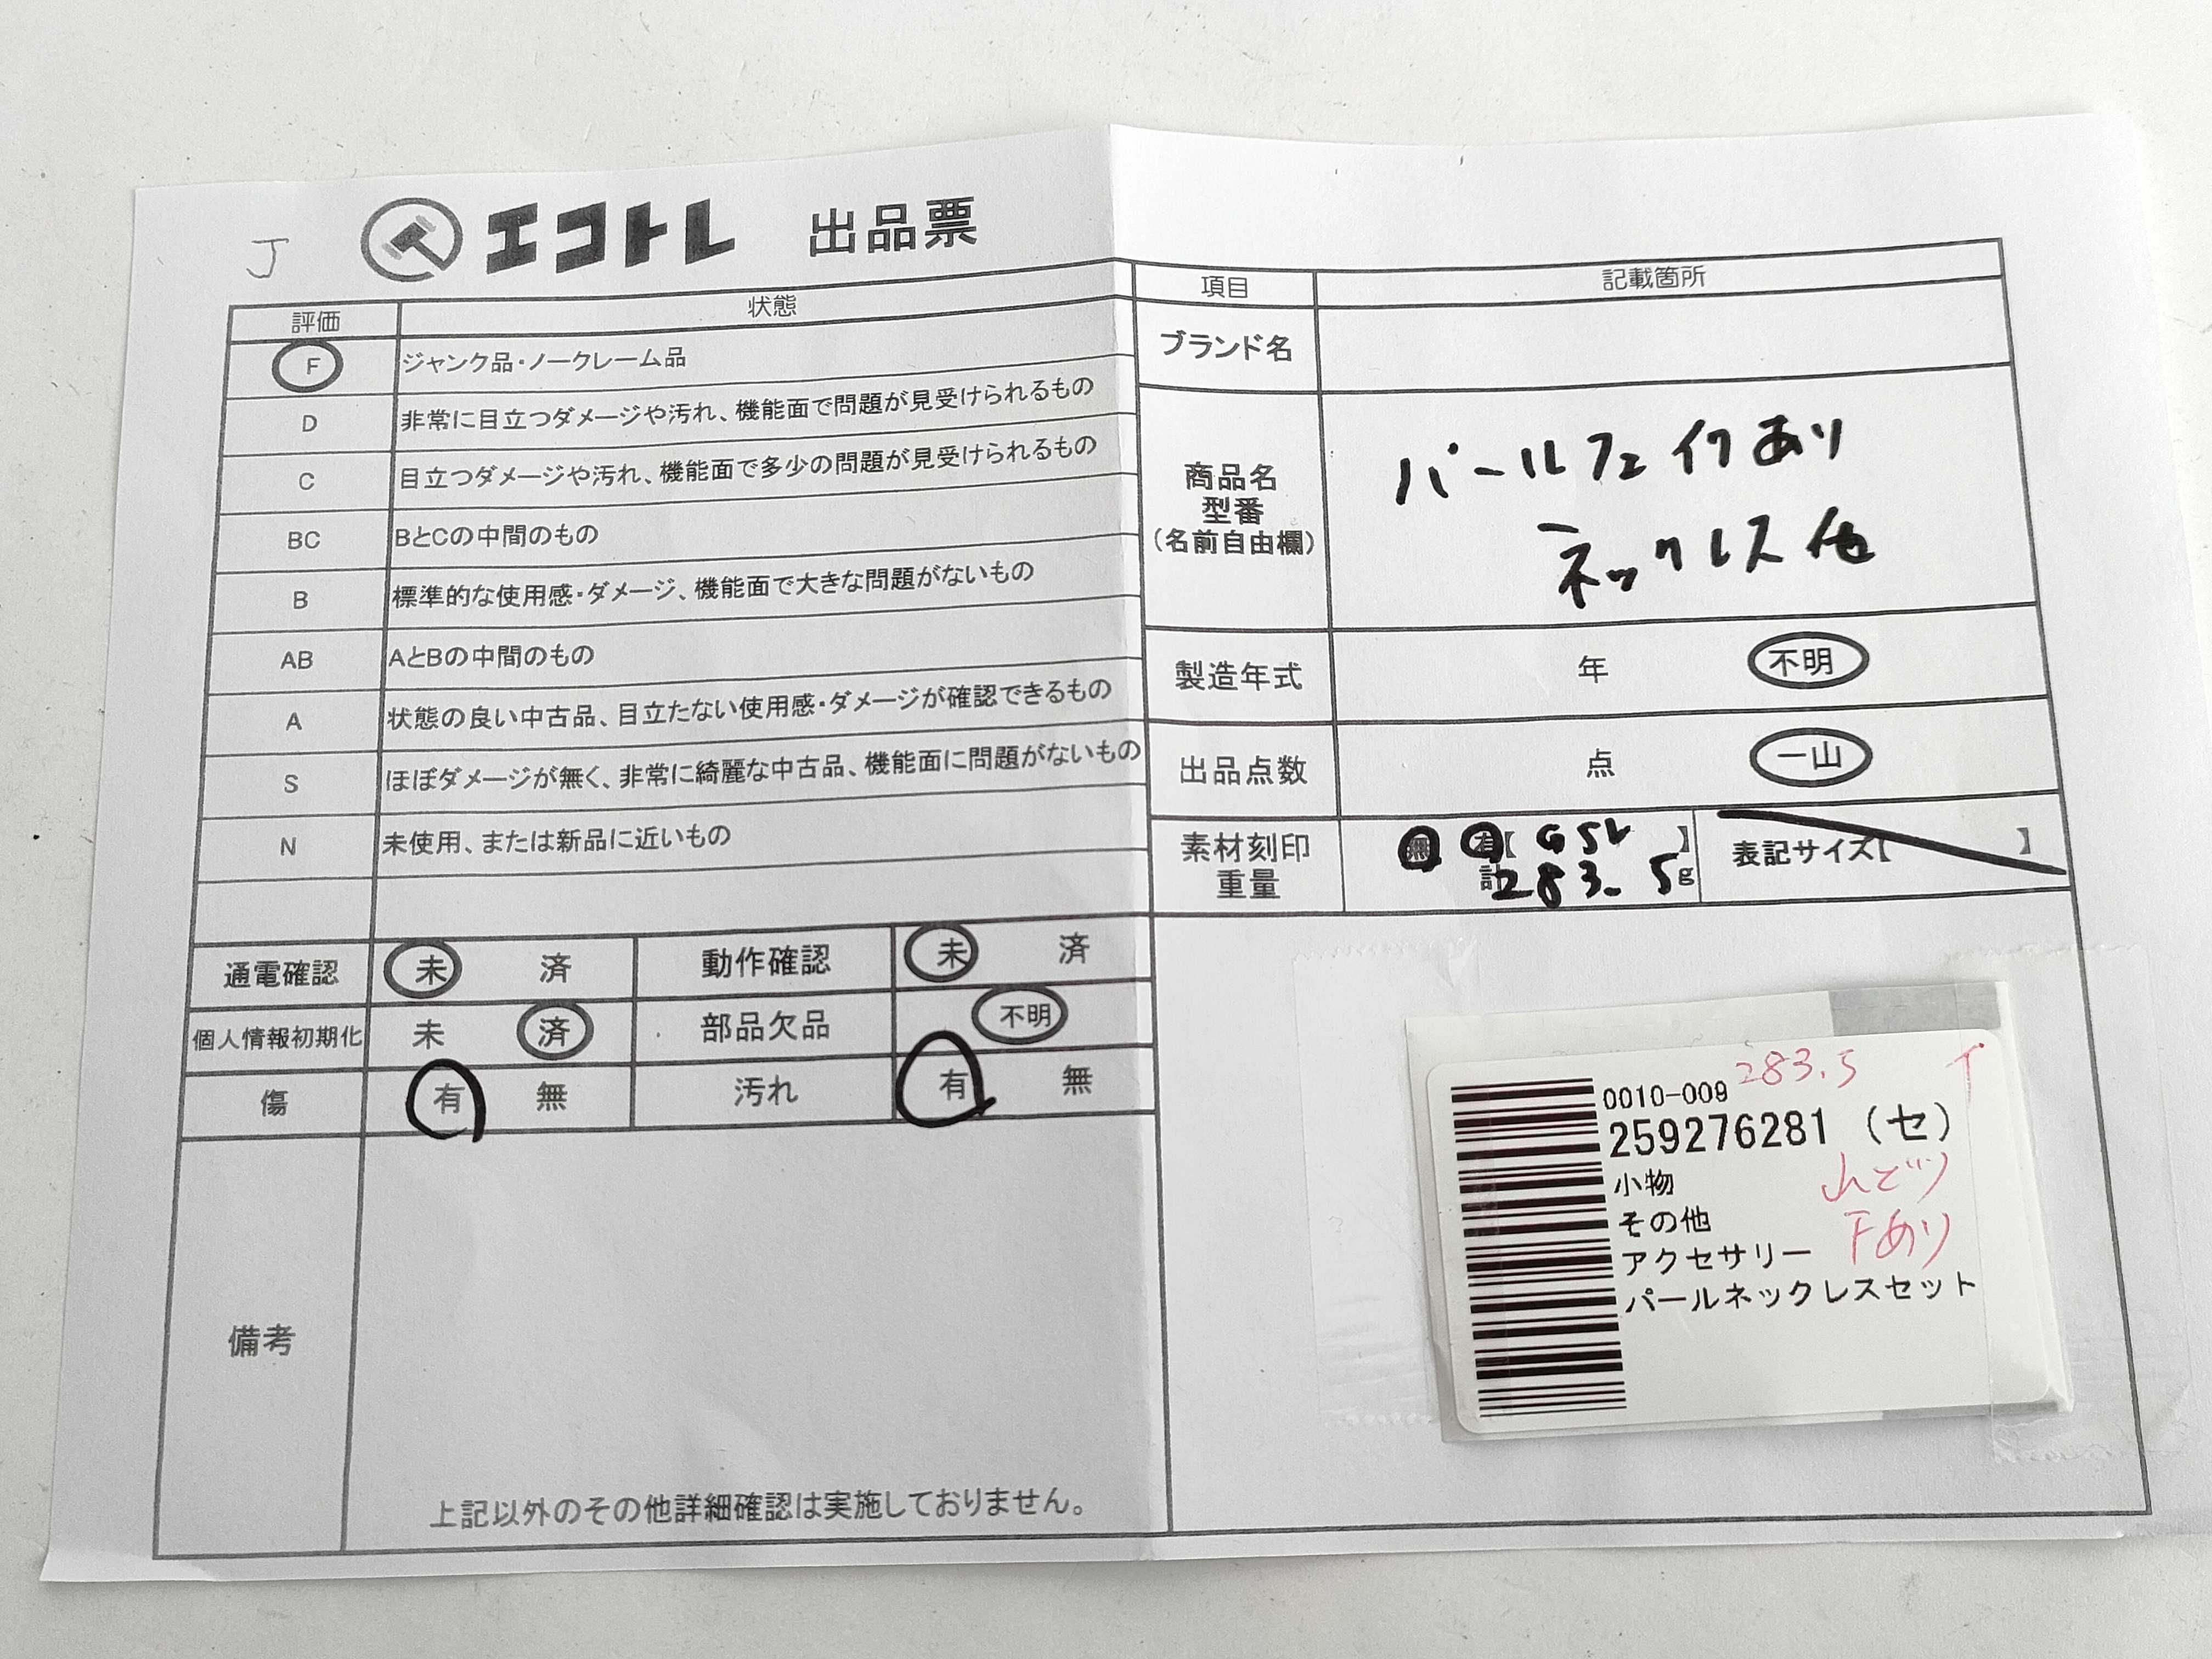 J
エコトレ 出品票
評価 状態
F ジャンク品・ノークレーム品
D 非常に目立つダメージや汚れ、機能面で問題が見受けられるもの
C 目立つダメージや汚れ、機能面で多少の問題が見受けられるもの
BC BとCの中間のもの
B 標準的な使用感・ダメージ、機能面で大きな問題がないもの
AB AとBの中間のもの
A 状態の良い中古品、目立たない使用感・ダメージが確認できるもの
S ほぼダメージが無く、非常に綺麗な中古品、機能面に問題がないもの
N 未使用、または新品に近いもの
通電確認 未 済 動作確認 未 済
個人情報初期化 未 済 部品欠品 不明
傷 有 無 汚れ 有 無
備考
上記以外のその他詳細確認は実施しておりません。
項目 記載箇所
ブランド名
商品名
型番
(名前自由欄)
パールフェイクあり
ネックレス他
製造年式 年 不明
出品点数 点 一山
素材刻印 無 有【 G SV 】
重量 計 283.5g
表記サイズ【 】
283.5
0010-009
259276281 (セ)
小物
その他
アクセサリー Fあり
パールネックレスセット